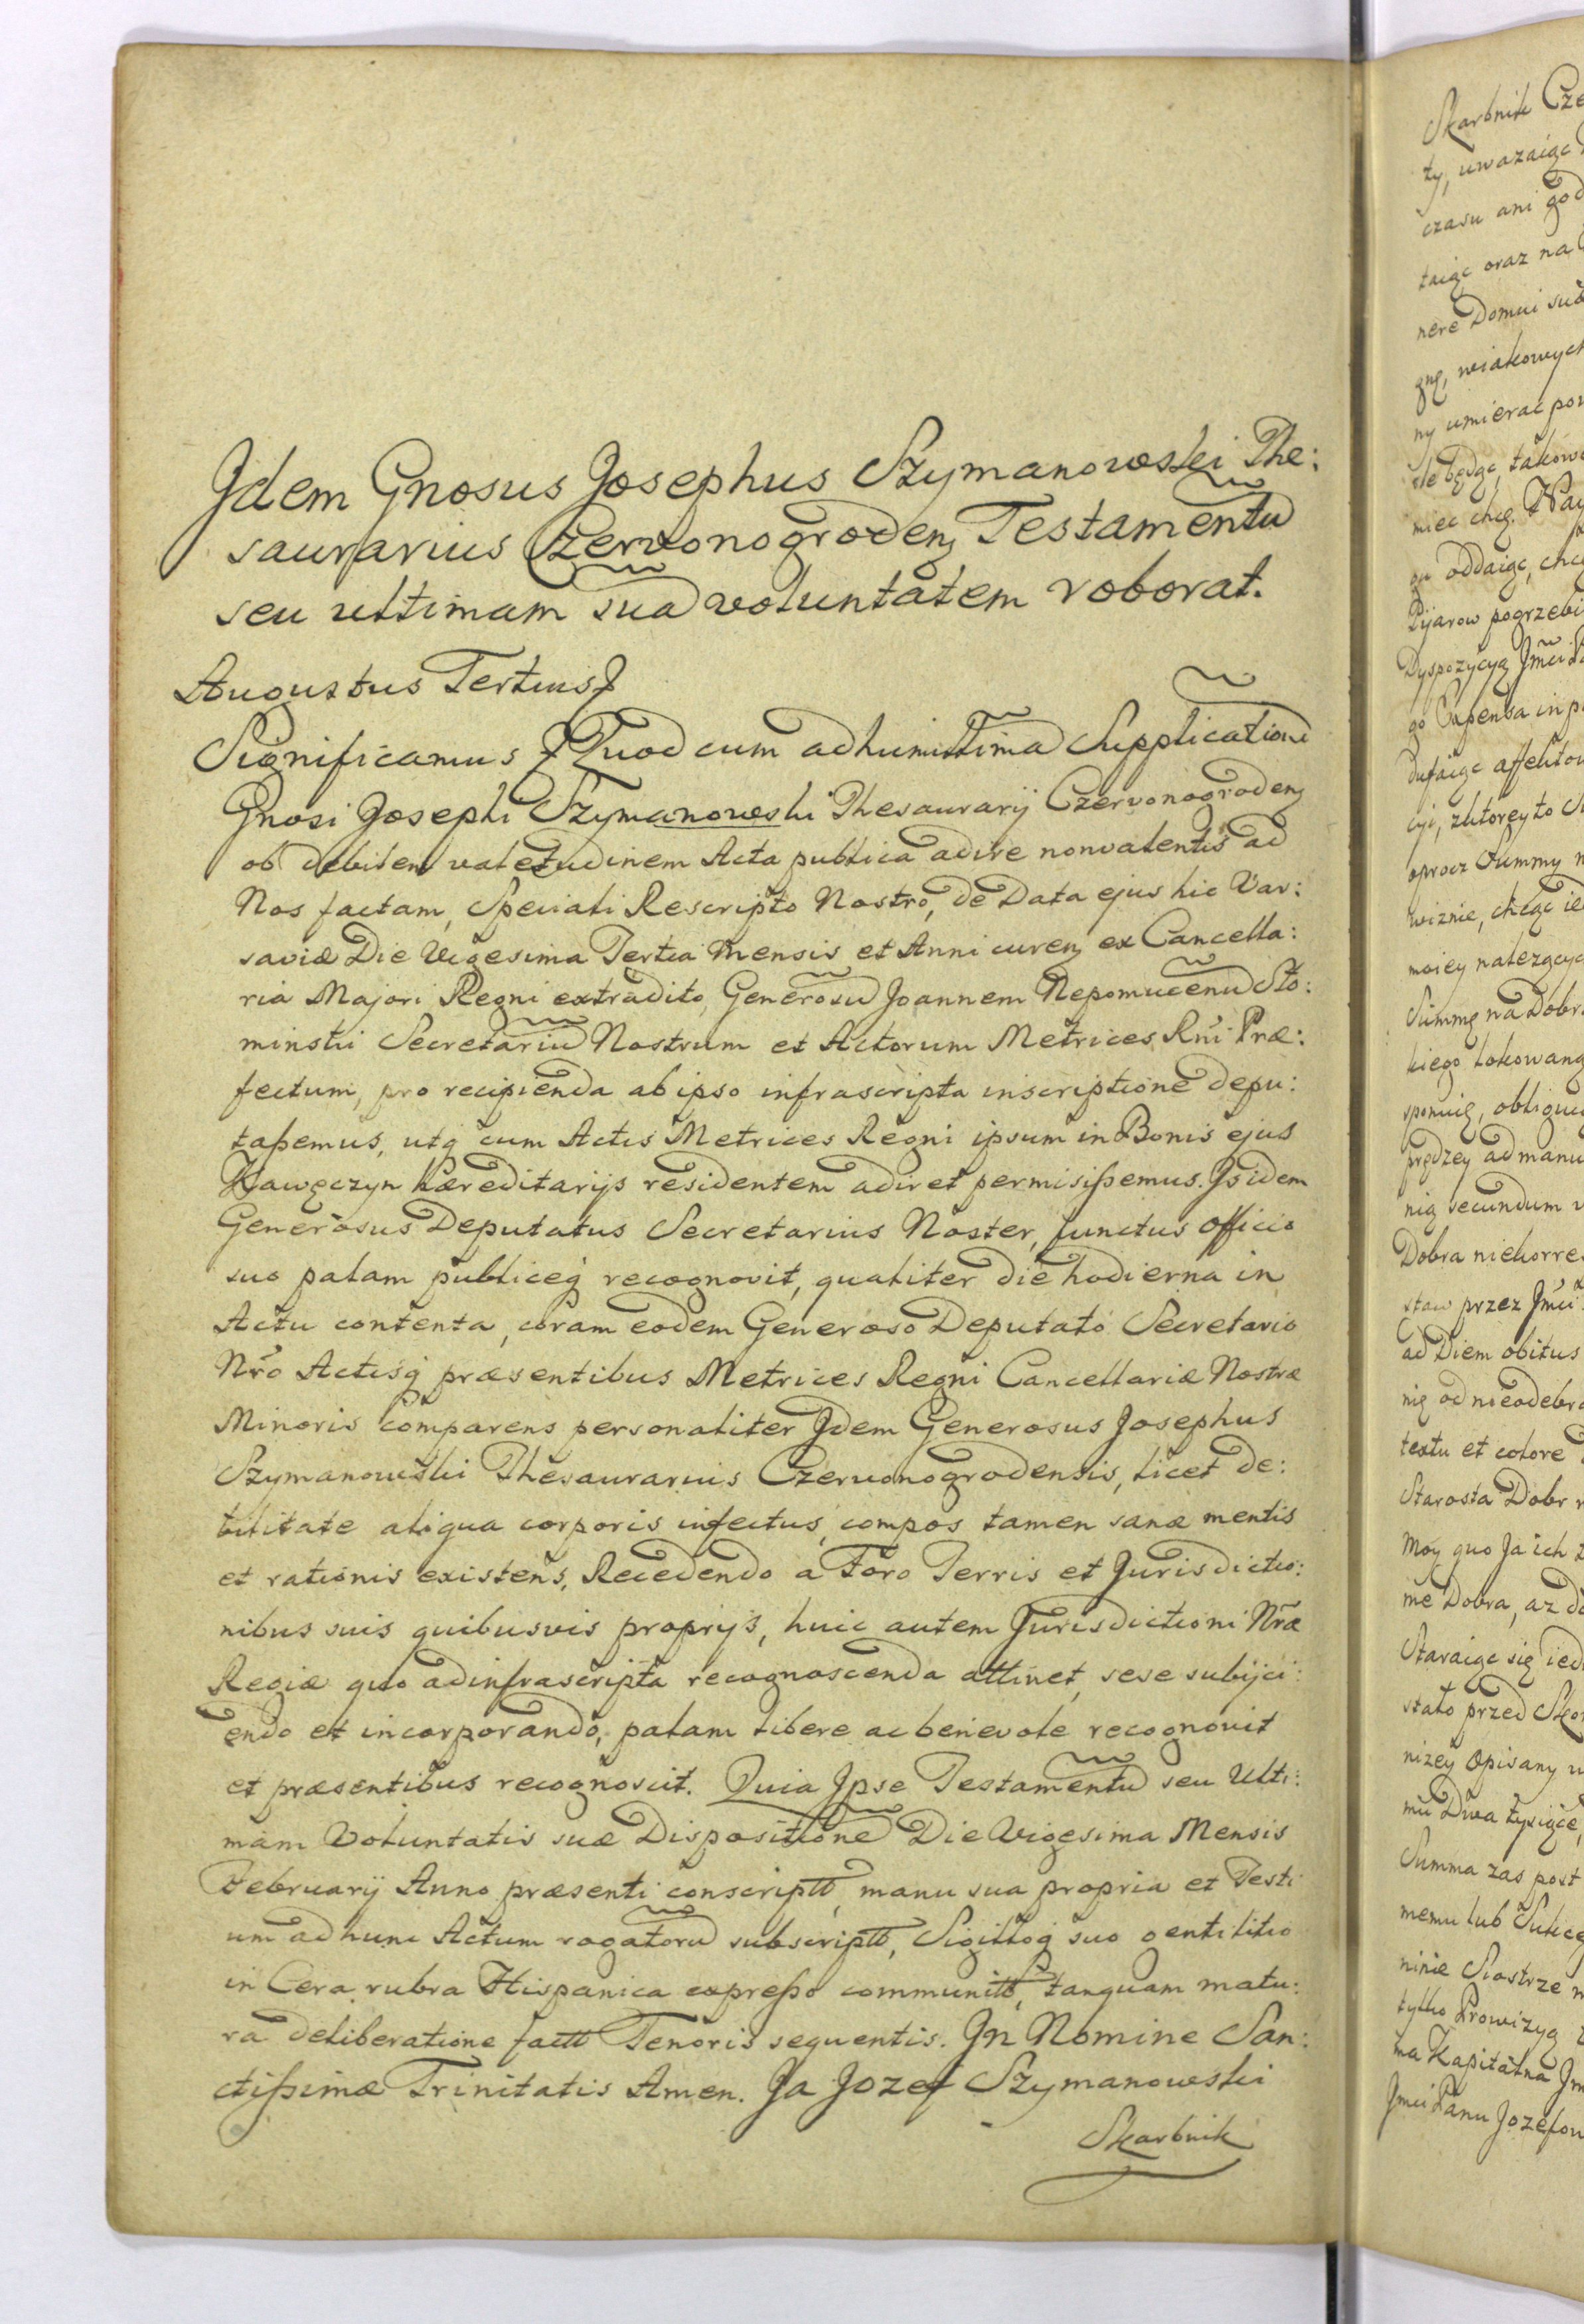 Idem Gnosus Josephus Szymanowski The:
saurarius Czervonogrodenȝ Testamentũ
seu ultimam suã voluntatem roborat.
Augustus Tertius
Significamus Quod cum ad humillimã Supplicationẽ
Gnosi Josephi Szymanowski Thesaurarij Czervonogrodenȝ
ob debilem valetudinem Acta publica adire non valentis ad
Nos factam, Speciali Rescripto Nostro, de Data ejus hic Var:
saviæ Die Vigesima Tertia Mensis et Anni curenȝ ex Cancella:
ria Majori Regni extradito, Generosũ Joannem Nepomucenũ Sło:
minski Secretariũ Nostrum et Actorum Metrices Rñi Præ:
fectum, pro recipienda ab ipso infrascripta inscriptione depu:
taßemus, utq cum Actis Metrices Regni ipsum in Bonis ejus
Kawęczyn hæreditarijs residentem adiret permisißemus. Isidem
Generosus Deputatus Secretarius Noster, functus officio
suo palam publiceq recognovit, qualiter die hodierna in
Actu contenta, coram eodem Generoso Deputato Secretario
Nr̃o Actisq præsentibus Metrices Regni Cancellariæ Nostræ
Minoris comparens personaliter Idem Generosus Josephus
Szymanowski Thesaurarius Czervonogrodensis, licet de:
bilitate aliqua corporis infectus, compos tamen sanæ mentis
et rationis existens, Recedendo a Foro Terris et Jurisdictio:
nibus suis quibusvis proprijs, huic autem Jurisdictioni Nr̃æ
Regiæ quo ad infrascripta recognoscenda attinet, sese subijci:
endo et incorporando, palam libere ac benevole recognovit
et præsentibus recognoscit. Quia Ipse Testamentũ seu Ulti:
mam Voluntatis suæ Dispositionẽ Die Vigesima Mensis
Februarij Anno præsenti conscriptt, manu sua propria et Testi
um ad hunc Actum rogatorũ subscriptt, Sigilloq suo gentilitio
in Cera rubra Hispanica expreßo communitt, tanquam matu:
ra deliberatione factt Tenoris sequentis. In Nomine San:
ctißimæ Trinitatis Amen. Ja Jozef Szymanowski
Skarbnik
Skarbnik
ty, uwazaiąc
czasu ani
taiąc oraz na
nere Domui
wiakowych
ny umierać
będąc,
miec chcę.
oddaiąc,
Pijarow
Dyspozycyą Jm̃ci
in
cyi, z ktorey to
oprocz Summy
wiznie, chcąc
moiey
Summę na
kiego lokowaną
prędzey ad
nią secundum
Dobra
przez Jm̃ci
ad Diem obitus
nią od
textu et colore
Starosta Dobr
moy quo Ja ich
me Dobra, az
Staraiąc się
przed
nizey Opisany
mu Dwa tysiące,
Summa zas post
memu lub
Siostrze
tylko Prowizyą
ma Kapitalna
Jmci Panu